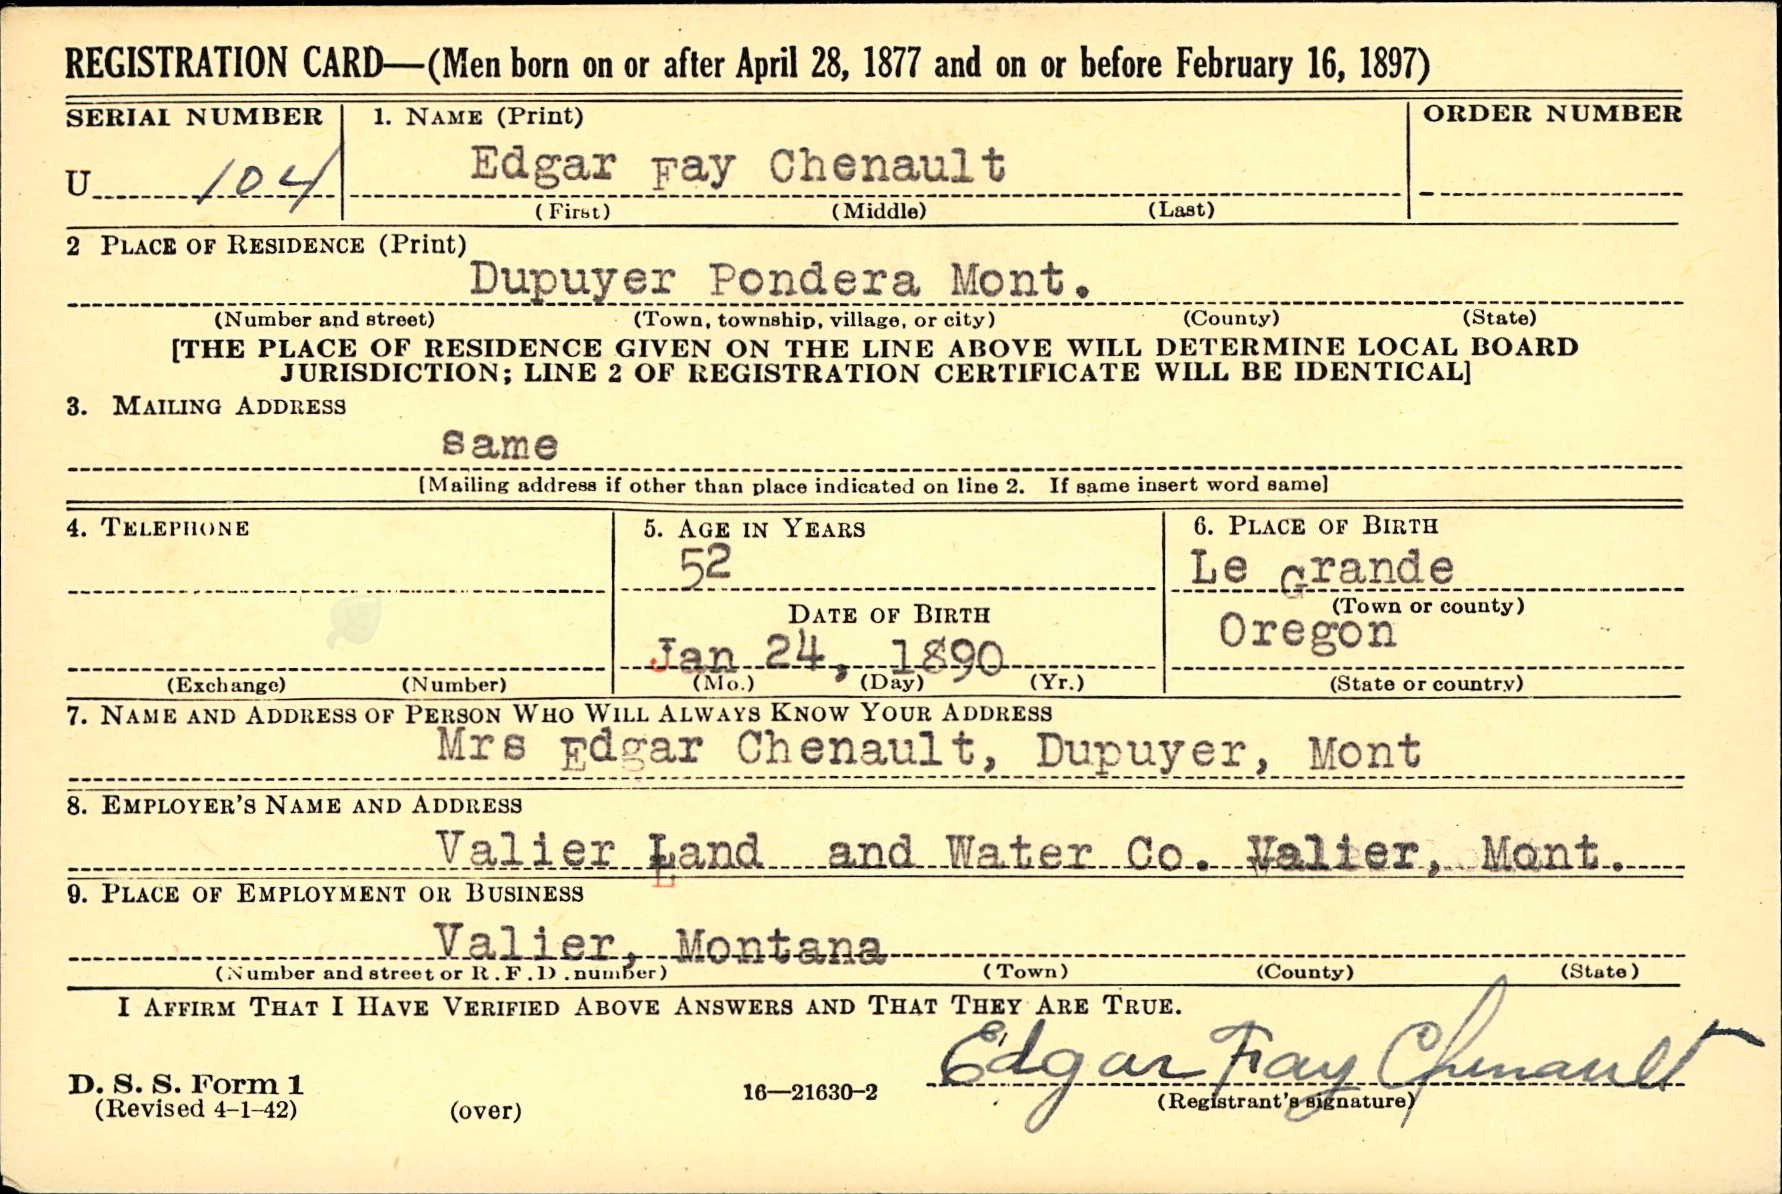 REGISTRATION CARD—(Men born on or after April 28, 1877 and on or before February 16, 1897)
SERIAL NUMBER 1. NAME (Print) ORDER NUMBER
U 104 Edgar Fay Chenault
(First) (Middle) (Last)
2 PLACE OF RESIDENCE (Print)
Dupuyer Pondera Mont.
(Number and street) (Town, township, village, or city) (County) (State)
[THE PLACE OF RESIDENCE GIVEN ON THE LINE ABOVE WILL DETERMINE LOCAL BOARD
JURISDICTION; LINE 2 OF REGISTRATION CERTIFICATE WILL BE IDENTICAL]
3. MAILING ADDRESS
same
[Mailing address if other than place indicated on line 2. If same insert word same]
4. TELEPHONE 5. AGE IN YEARS 6. PLACE OF BIRTH
52 Le Grande
DATE OF BIRTH (Town or county)
Jan 24, 1890 Oregon
(Exchange) (Number) (Mo.) (Day) (Yr.) (State or country)
7. NAME AND ADDRESS OF PERSON WHO WILL ALWAYS KNOW YOUR ADDRESS
Mrs Edgar Chenault, Dupuyer, Mont
8. EMPLOYER'S NAME AND ADDRESS
Valier Land and Water Co. Valier, Mont.
9. PLACE OF EMPLOYMENT OR BUSINESS
Valier, Montana
(Number and street or R. F. D. number) (Town) (County) (State)
I AFFIRM THAT I HAVE VERIFIED ABOVE ANSWERS AND THAT THEY ARE TRUE.
Edgar Fay Chenault
D. S. S. Form 1 16—21630-2 (Registrant's signature)
(Revised 4-1-42) (over)